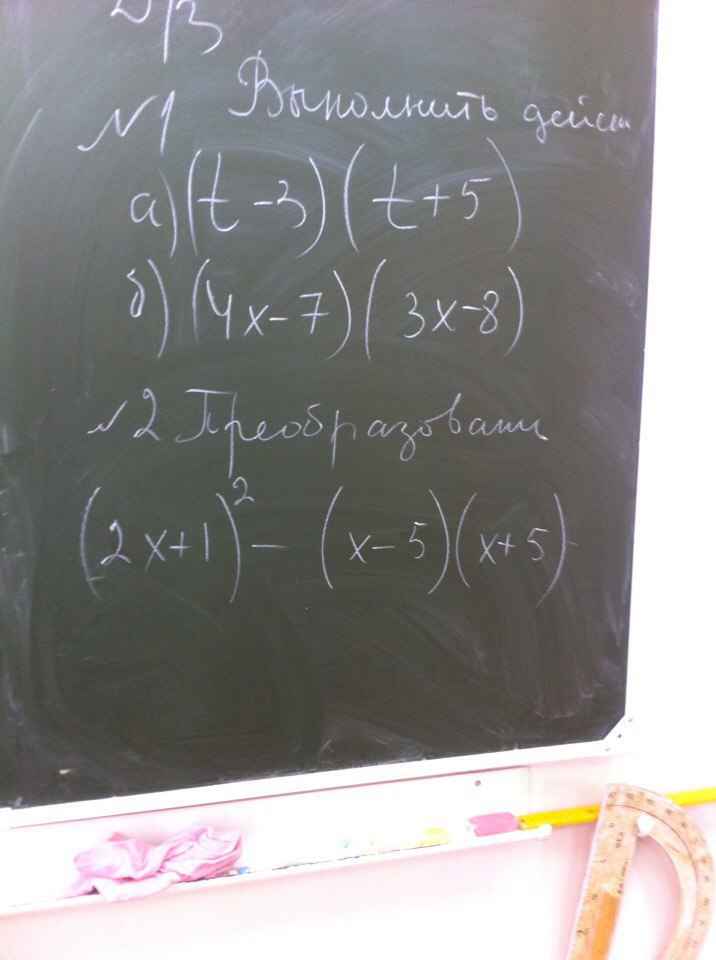 Д/З
№1 Выполнить дейст
а) (t-3)(t+5)
б) (4x-7)(3x-8)
№2 Преобразовать
(2x+1)² - (x-5)(x+5)